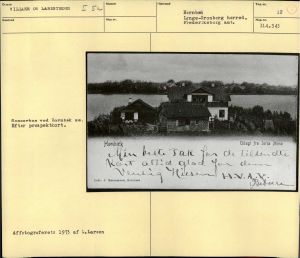 VILLAER OG LANDSTEDER
I 52
Hornbæk
Lynge-Kronborg herred,
Frederiksborg amt.
12
Sommerhus ved Hornbæk sø.
Efter prospektkort.
Hornbæk
Udsigt fra
Min bedste Tak for de tilsendte
Kort altid glad for dem
Venlig Hilsen H.V.A.V.
Affotograferet: 1973 af L.Larsen